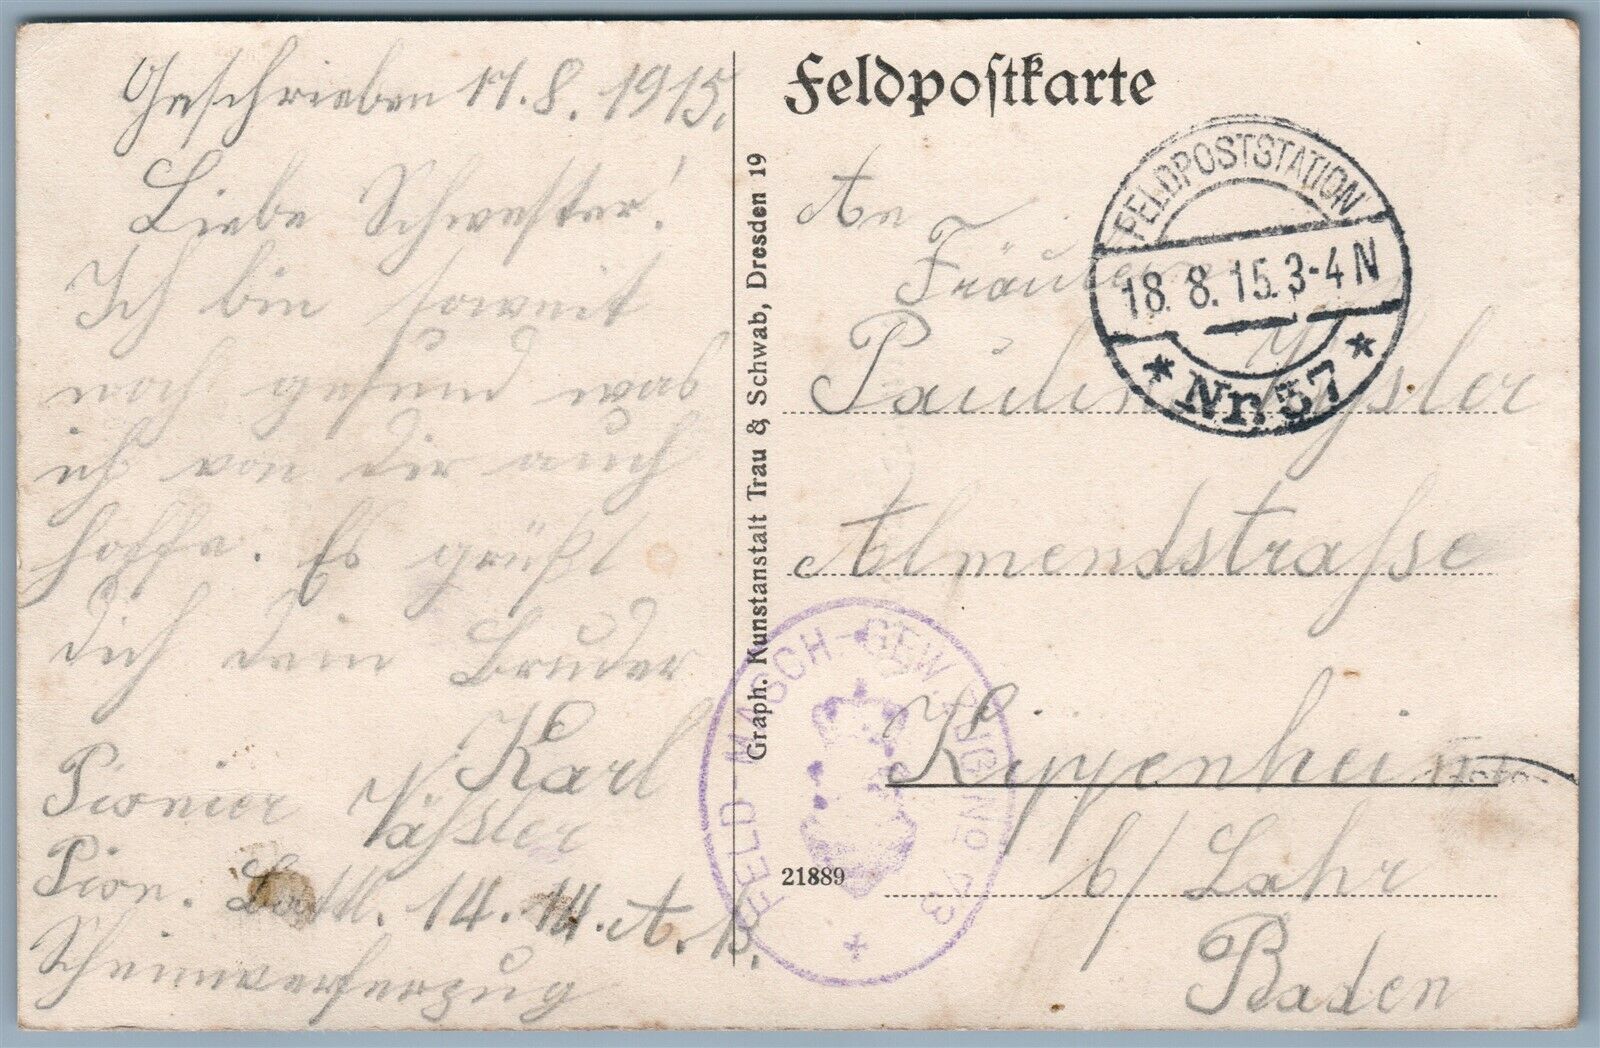 Geschrieben 17.8.1915.
Liebe Schwester!
Ich bin soweit
noch gesund was
ich von dir auch
hoffe. Es grüßt
dich dein Bruder
Karl
Pionier
Pion. Battl. 14. 14. A. K.
Scheinwerferzug
Feldpostkarte
An
Fräulein
Pauline
Almendstrasse
Kippenheim
b/ Lahr
Baden
FELDPOSTSTATION
18.8.15.3-4N
* Nr. 57 *
FELD-MASCH.-GEW.-ZUG No
21889
Graph. Kunstanstalt Trau & Schwab, Dresden 19